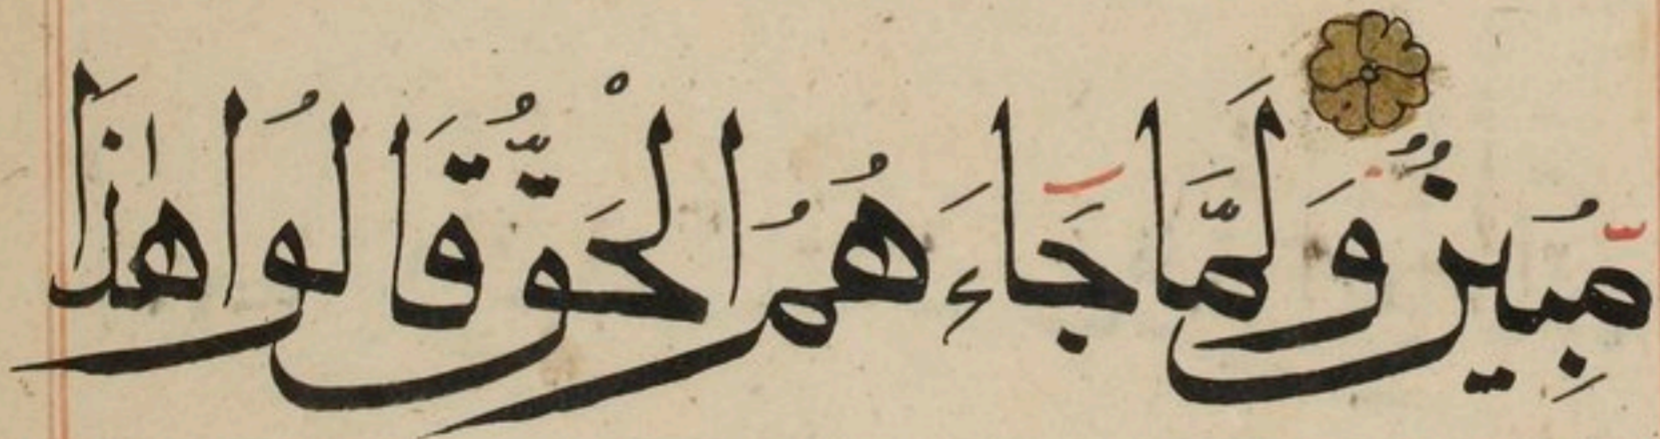 مُّبِينٌ وَلَمَّا جَاءَهُمُ الْحَقُّ قَالُوا هٰذَا